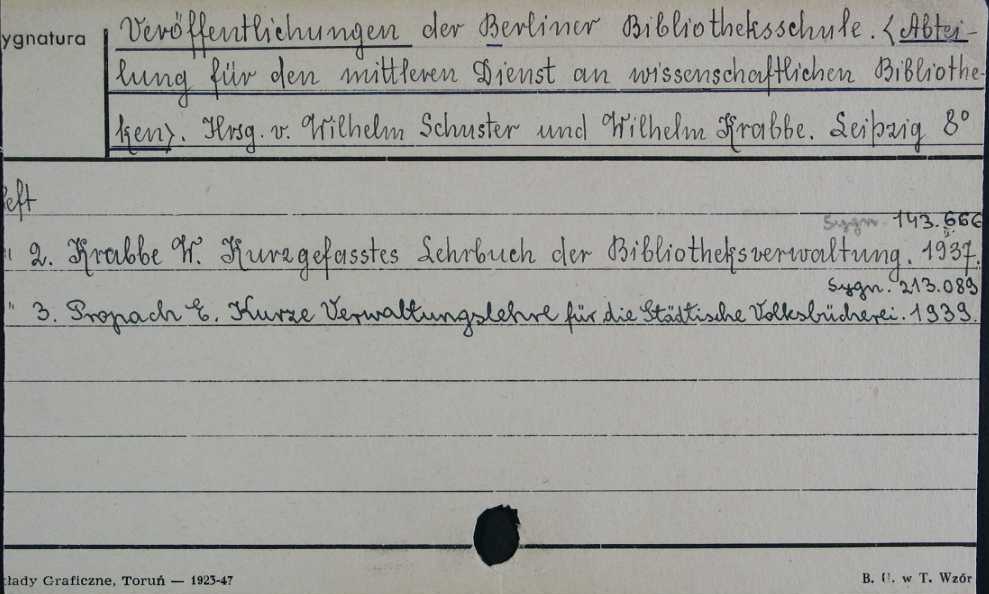 ygnatura
Veröffentlichungen der Berliner Bibliotheksschule. <Abtei-
lung für den mittleren Dienst an wissenschaftlichen Bibliothe-
ken>. Hrsg. v. Wilhelm Schuster und Wilhelm Krabbe. Leipzig 8°
eft
Sygn. 143.666
" 2. Krabbe W. Kurzgefasstes Lehrbuch der Bibliotheksverwaltung. 1937.
Sygn. 213.089
" 3. Propach E. Kurze Verwaltungslehre für die Städtische Volksbücherei. 1939.
łady Graficzne, Toruń — 1923-47
B. U. w T. Wzór